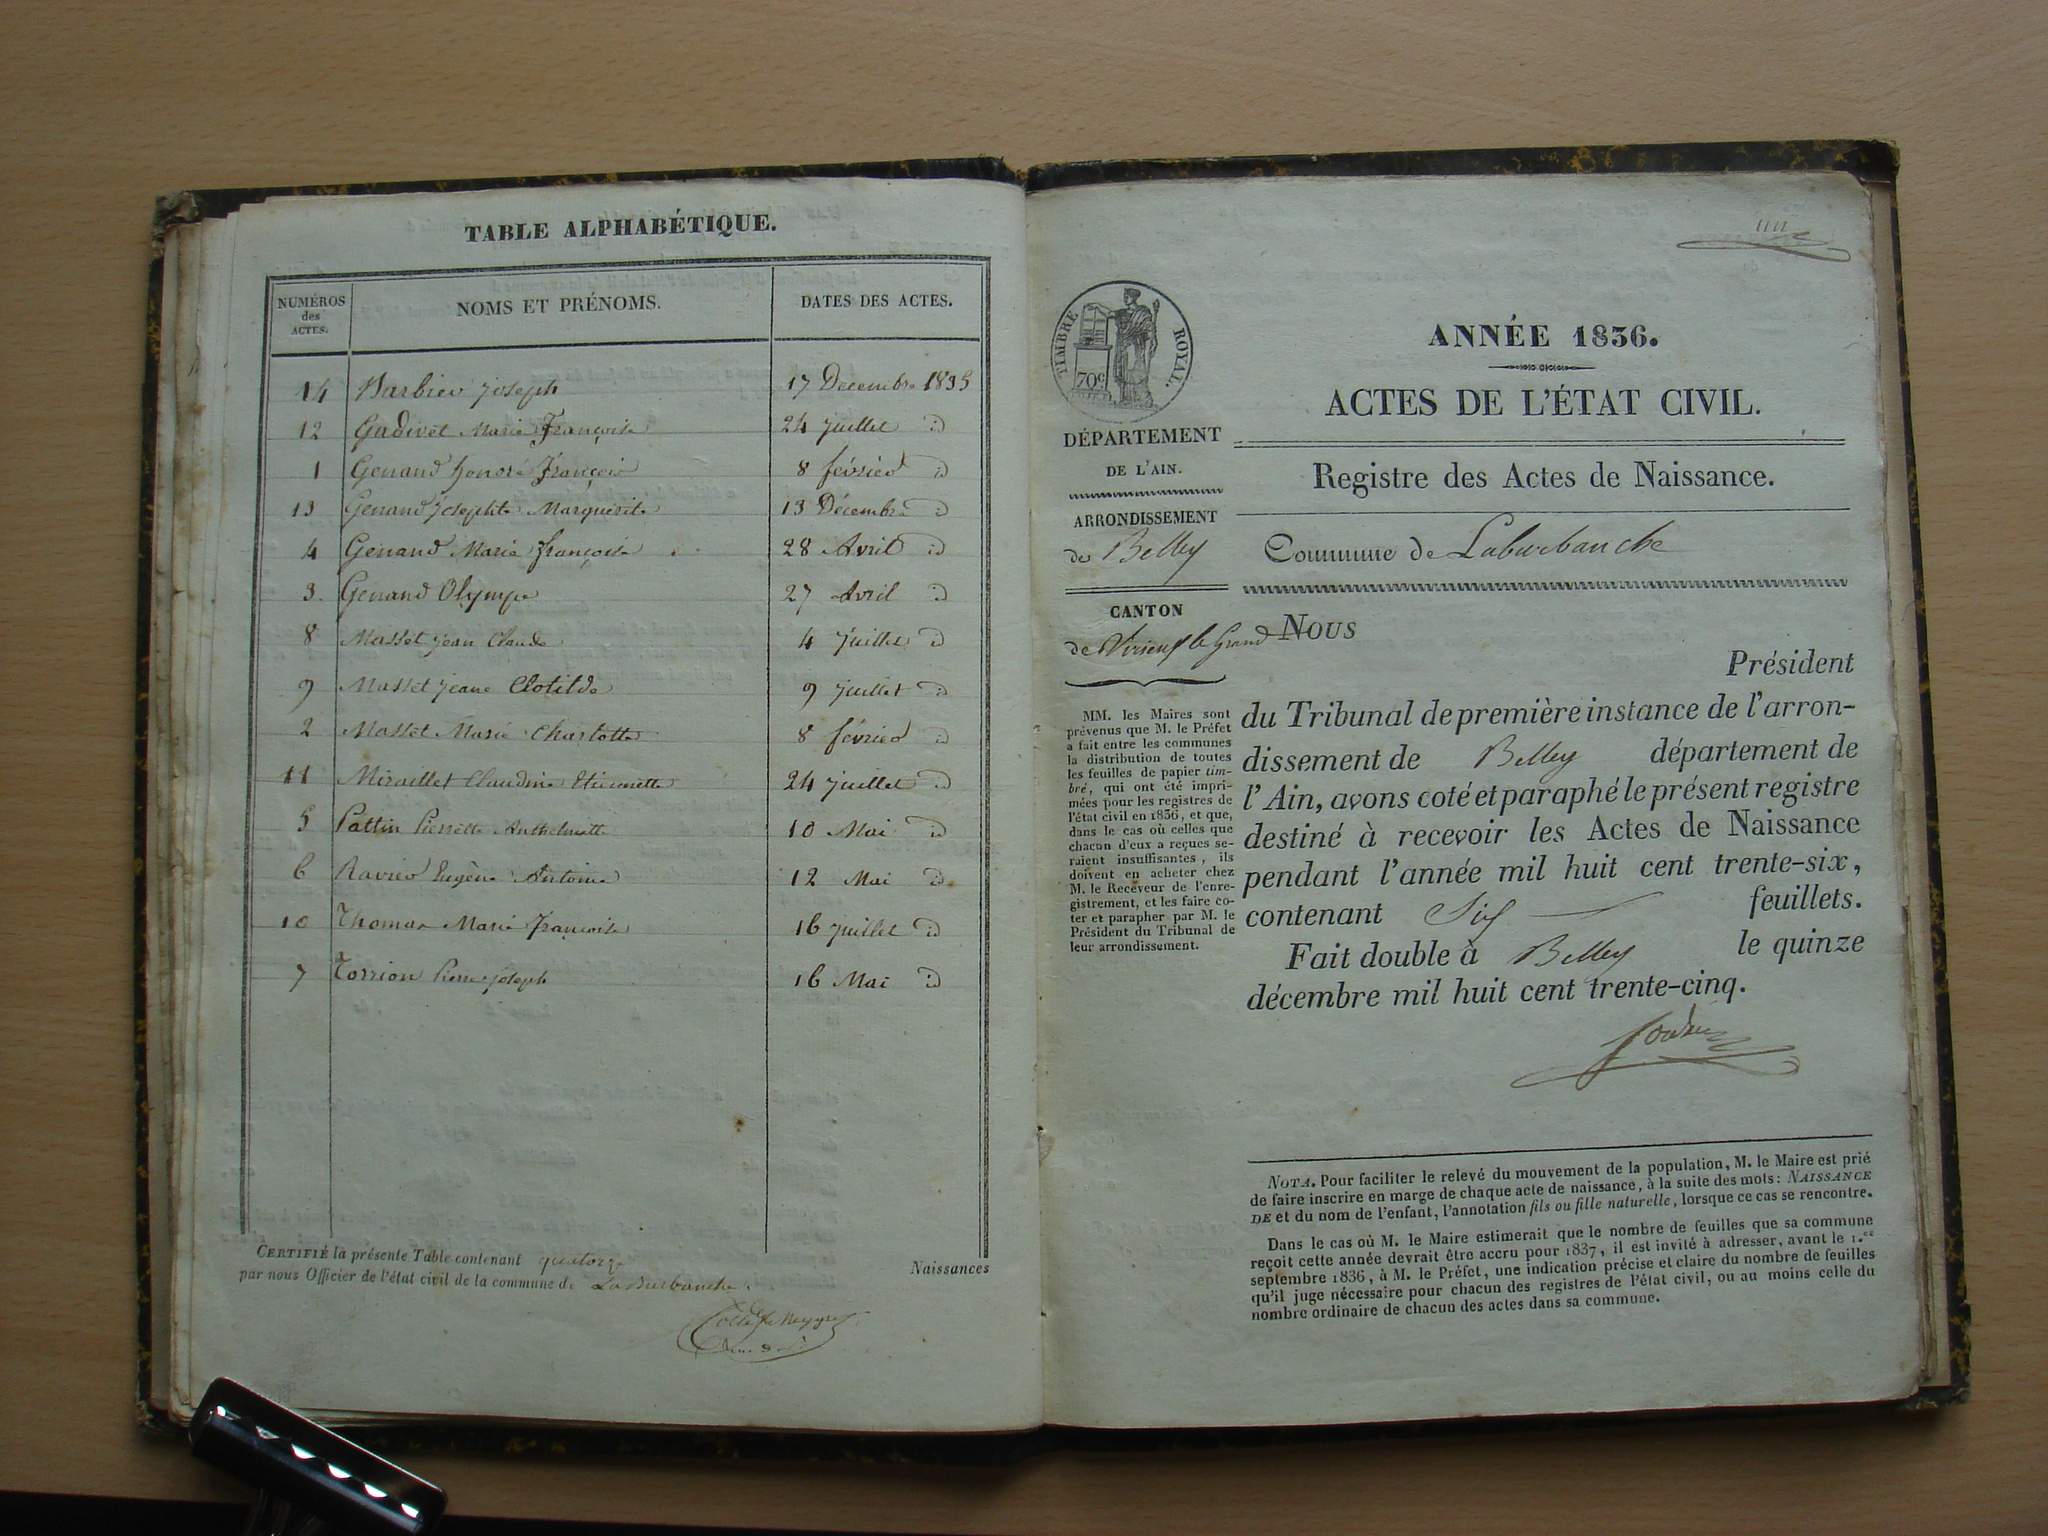 TABLE ALPHABÉTIQUE.
NUMÉROS
des
ACTES.
NOMS ET PRÉNOMS.
DATES DES ACTES.
14 Barbier Joseph 17 Decembre 1835
12 Gudivet Marie Françoise 24 juillet id
1 Genand honoré François 8 février id
13 Genand Josephte Marguerite 13 Décembre id
4 Genand Marie françoise 28 Avril id
3. Genand Olympe 27 Avril id
8 Masset jean Claude 4 juillet id
9 Masset jeane Clotilde 9 juillet id
2 Masset Marie Charlotte 8 février id
11 Miraillet Claudine Etiennette 24 juillet id
5 Pattin Pierrette Anthelmette 10 Mai id
6 Ravier Eugène Antoine 12 Mai id
10 Thomas Marie Françoise 16 juillet id
7 Torrion Pierre joseph 16 Mai id
CERTIFIÉ la présente Table contenant quatorze
par nous Officier de l'état civil de la commune de La Burbanche.
Naissances
TIMBRE ROYAL.
70c
ANNÉE 1836.
ACTES DE L'ÉTAT CIVIL.
DÉPARTEMENT
DE L'AIN.
Registre des Actes de Naissance.
ARRONDISSEMENT
de Belley
Commune de Laburbanche
CANTON
de Virieux le Grand
MM. les Maires sont
prévenus que M. le Préfet
a fait entre les communes
la distribution de toutes
les feuilles de papier tim-
bré, qui ont été impri-
mées pour les registres de
l'état civil en 1836, et que,
dans le cas où celles que
chacun d'eux a reçues se-
raient insuffisantes, ils
doivent en acheter chez
M. le Receveur de l'enre-
gistrement, et les faire co-
ter et parapher par M. le
Président du Tribunal de
leur arrondissement.
NOUS
Président
du Tribunal de première instance de l'arron-
dissement de Belley département de
l'Ain, avons coté et paraphé le présent registre
destiné à recevoir les Actes de Naissance
pendant l'année mil huit cent trente-six,
contenant Six feuillets.
Fait double à Belley le quinze
décembre mil huit cent trente-cinq.
NOTA. Pour faciliter le relevé du mouvement de la population, M. le Maire est prié
de faire inscrire en marge de chaque acte de naissance, à la suite des mots: NAISSANCE
DE et du nom de l'enfant, l'annotation fils ou fille naturelle, lorsque ce cas se rencontre.
Dans le cas où M. le Maire estimerait que le nombre de feuilles que sa commune
reçoit cette année devrait être accru pour 1837, il est invité à adresser, avant le 1.er
septembre 1836, à M. le Préfet, une indication précise et claire du nombre de feuilles
qu'il juge nécessaire pour chacun des registres de l'état civil, ou au moins celle du
nombre ordinaire de chacun des actes dans sa commune.